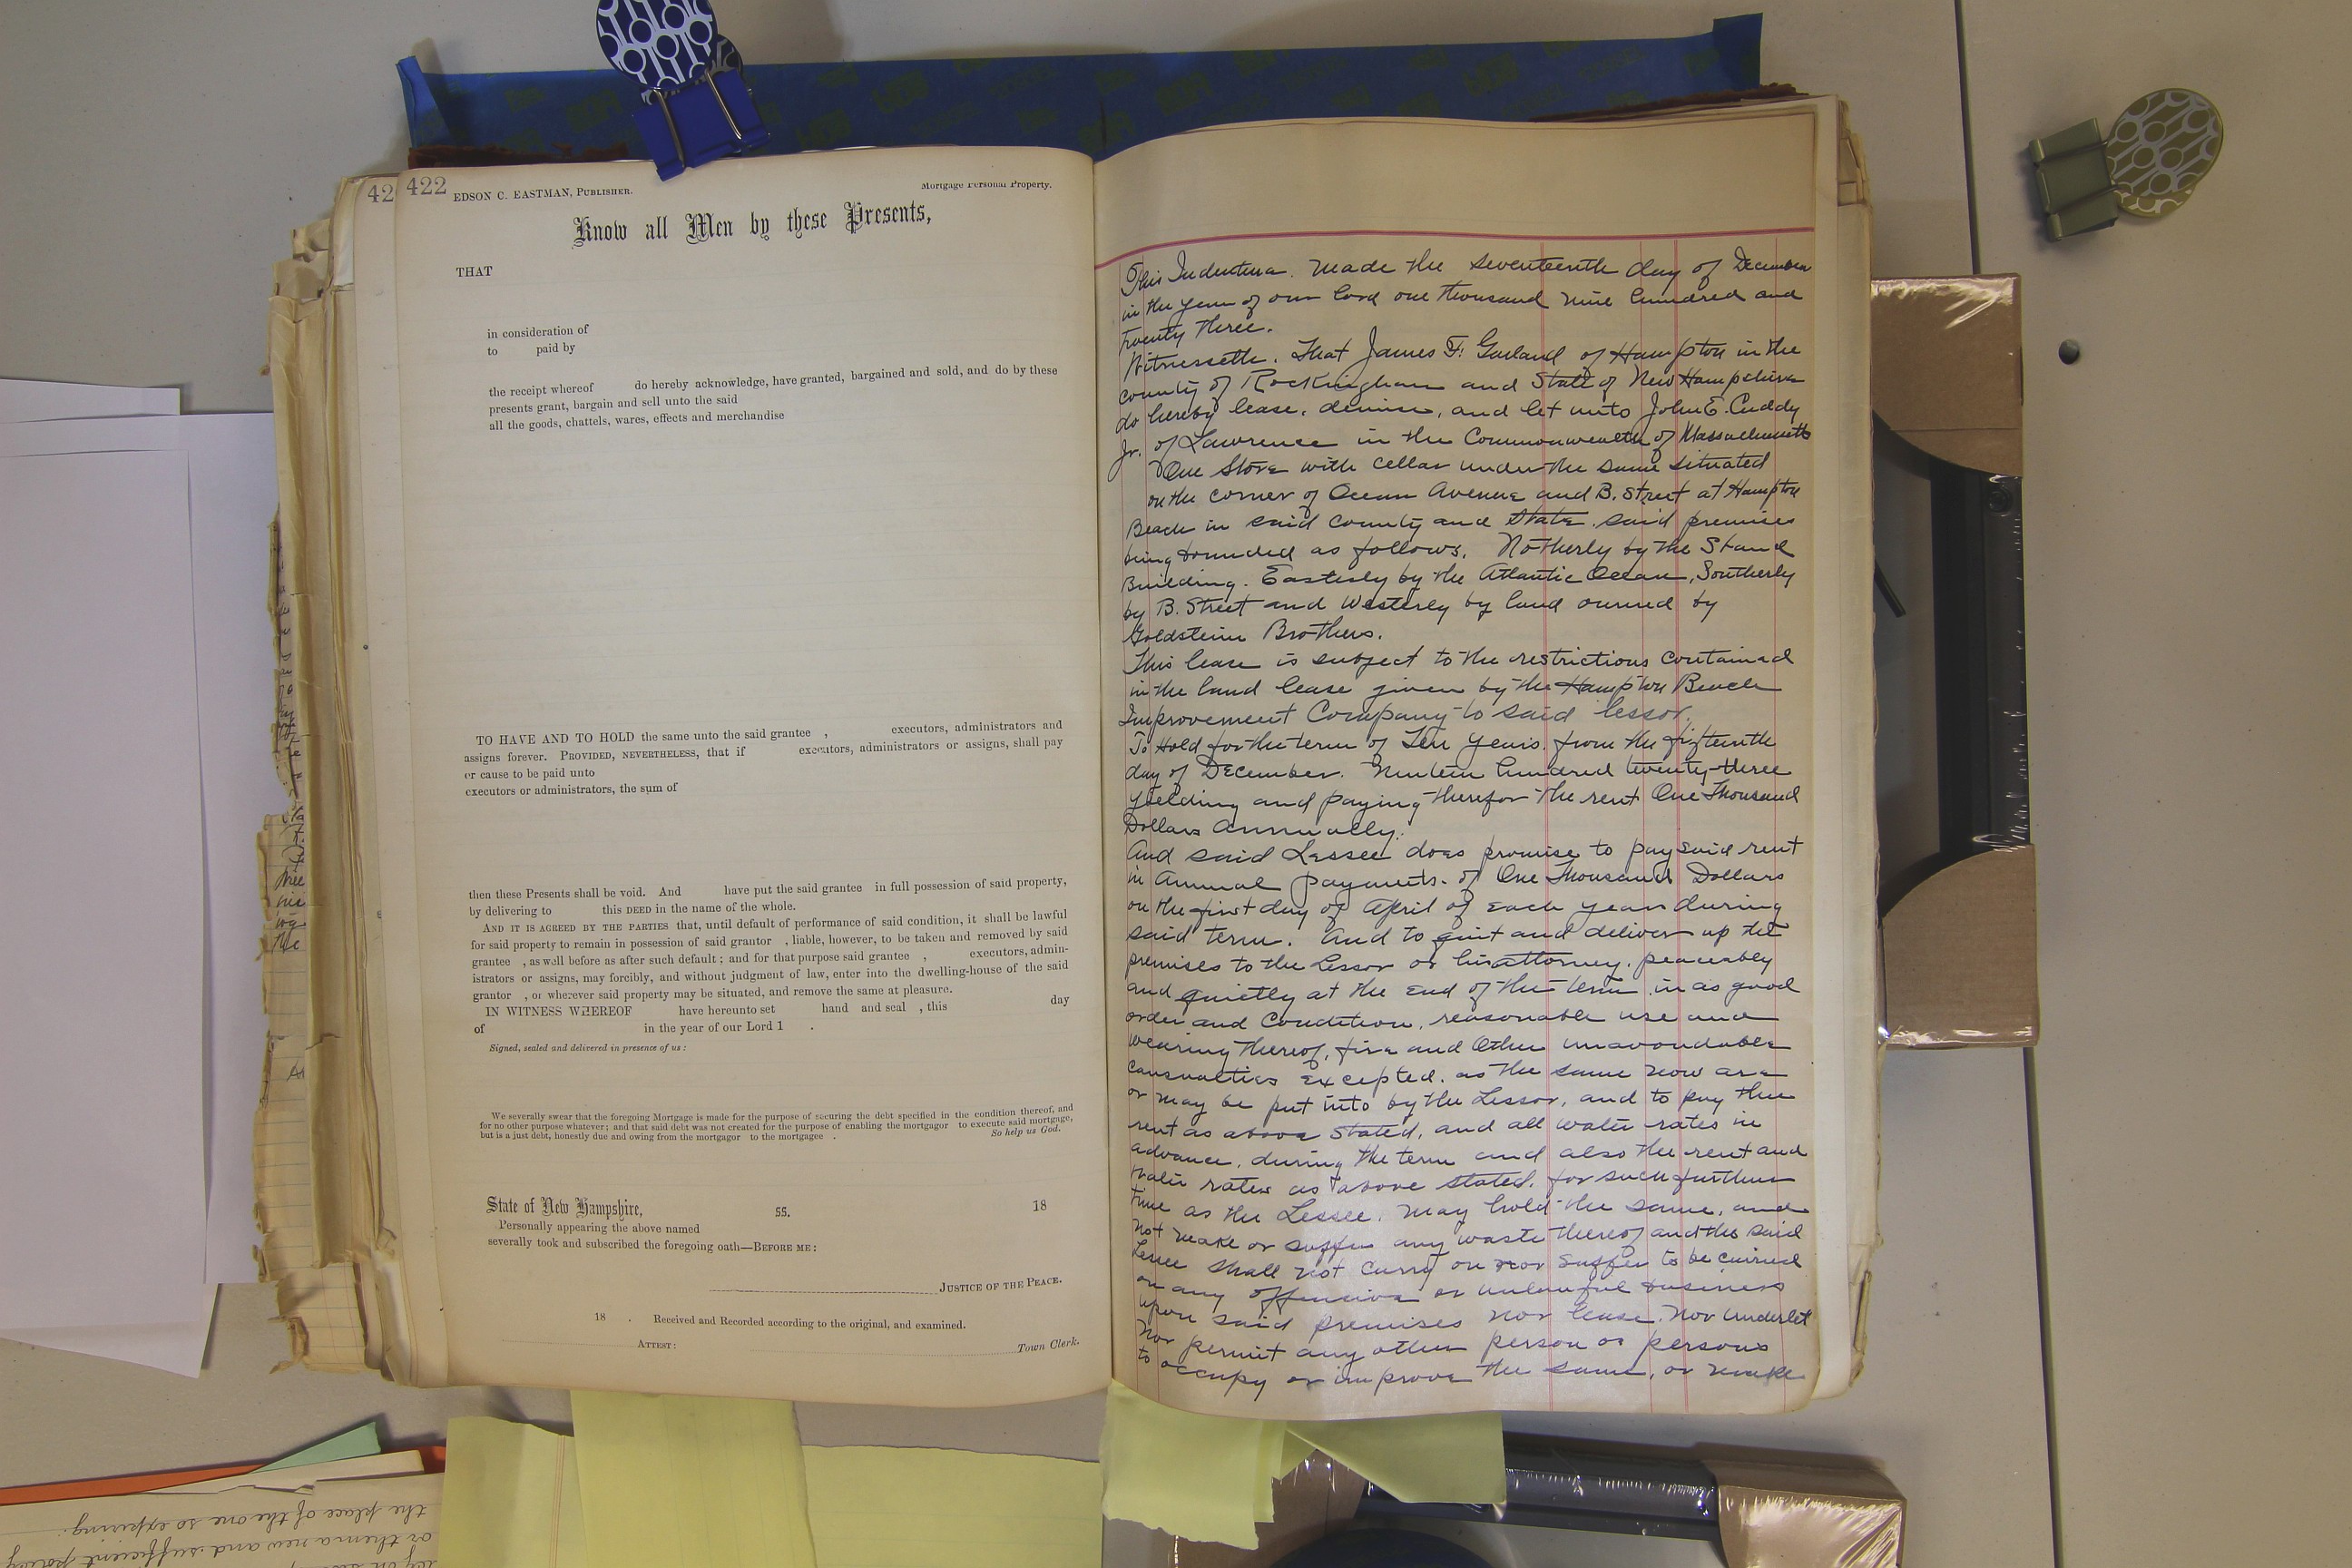 42
422
EDSON C. EASTMAN, PUBLISHER.
Mortgage Personal Property.
Know all Men by these Presents,
THAT
in consideration of
to paid by
the receipt whereof do hereby acknowledge, have granted, bargained and sold, and do by these
presents grant, bargain and sell unto the said
all the goods, chattels, wares, effects and merchandise
TO HAVE AND TO HOLD the same unto the said grantee , executors, administrators and
assigns forever. PROVIDED, NEVERTHELESS, that if executors, administrators or assigns, shall pay
or cause to be paid unto
executors or administrators, the sum of
then these Presents shall be void. And have put the said grantee in full possession of said property,
by delivering to this DEED in the name of the whole.
AND IT IS AGREED BY THE PARTIES that, until default of performance of said condition, it shall be lawful
for said property to remain in possession of said grantor , liable, however, to be taken and removed by said
grantee , as well before as after such default; and for that purpose said grantee , executors, admin-
istrators or assigns, may forcibly, and without judgment of law, enter into the dwelling-house of the said
grantor , or wherever said property may be situated, and remove the same at pleasure.
IN WITNESS WHEREOF have hereunto set hand and seal , this day
of in the year of our Lord 1 .
Signed, sealed and delivered in presence of us:
We severally swear that the foregoing Mortgage is made for the purpose of securing the debt specified in the condition thereof, and
for no other purpose whatever; and that said debt was not created for the purpose of enabling the mortgagor to execute said mortgage,
but is a just debt, honestly due and owing from the mortgagor to the mortgagee . So help us God.
State of New Hampshire, ss. 18
Personally appearing the above named
severally took and subscribed the foregoing oath—BEFORE ME:
JUSTICE OF THE PEACE.
18 . Received and Recorded according to the original, and examined.
ATTEST: Town Clerk.
This Indenture. Made the Seventeenth day of December
in the year of our Lord one thousand nine hundred and
twenty three.
Witnesseth. That James F. Garland of Hampton in the
county of Rockingham and State of New Hampshire
do hereby lease, demise, and let unto John E. Cuddy
Jr. of Lawrence in the Commonwealth of Massachusetts
One Store with cellar under the same situated
on the corner of Ocean Avenue and B. Street at Hampton
Beach in said County and State. said premises
being bounded as follows. Notherly by the Stand
Building. Easterly by the Atlantic Ocean, Southerly
by B. Street and Westerly by land owned by
Goldstein Brothers.
This lease is subject to the restrictions contained
in the land lease given by the Hampton Beach
Improvement Company to said lessor.
To Hold for the term of Ten Years. from the fifteenth
day of December. Nineteen hundred twenty-three
yielding and paying therefor the rent One Thousand
Dollars Annually.
And said Lessee does promise to pay said rent
in Annual payments. of One Thousand Dollars
on the first day of April of each year during
said term. And to quit and deliver up the
premises to the Lessor or his attorney. peaceably
and quietly at the End of the term. in as good
order and Condition, reasonable use and
wearing thereof, fire and Other unavoidable
casualties excepted. as the same now are
or may be put into by the Lessor, and to pay the
rent as above Stated, and all water rates in
advance, during the term and also the rent and
water rates as above stated, for such further
time as the Lessee. may hold the same, and
not make or suffer any waste thereof and the said
Lessee shall not carry on nor suffer to be carried
on any offensive or unlawful business
upon said premises nor lease. Nor underlet
Nor permit any other person or persons
to occupy or improve the same, or make
the place of the one so expiring.
or them a new and sufficient policy